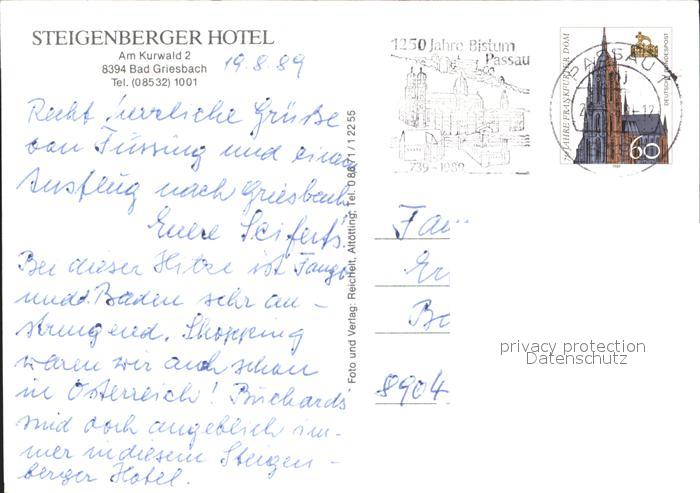 STEIGENBERGER HOTEL
Am Kurwald 2
8394 Bad Griesbach
Tel. (08532) 1001
19.8.89
Recht herzliche Grüße
von Füssing und einen
Ausflug nach Griesbach
Euere Seiferts.
Bei dieser Hitze ist Fango
und Baden sehr an-
strengend. Shopping
waren wir auch schon
in Österreich! Buchards
sind doch angeblich im-
mer in diesem Steigen-
berger Hotel.
Foto und Verlag: Reichelt, Altötting, Tel. 0 86 71 / 1 22 55
1250 Jahre Bistum
Passau
739-1989
PASSAU 1
JAHRE FRANKFURTER DOM
DEUTSCHE BUNDESPOST
60
1989
Fam
Er
Bo
8904
privacy protection
Datenschutz